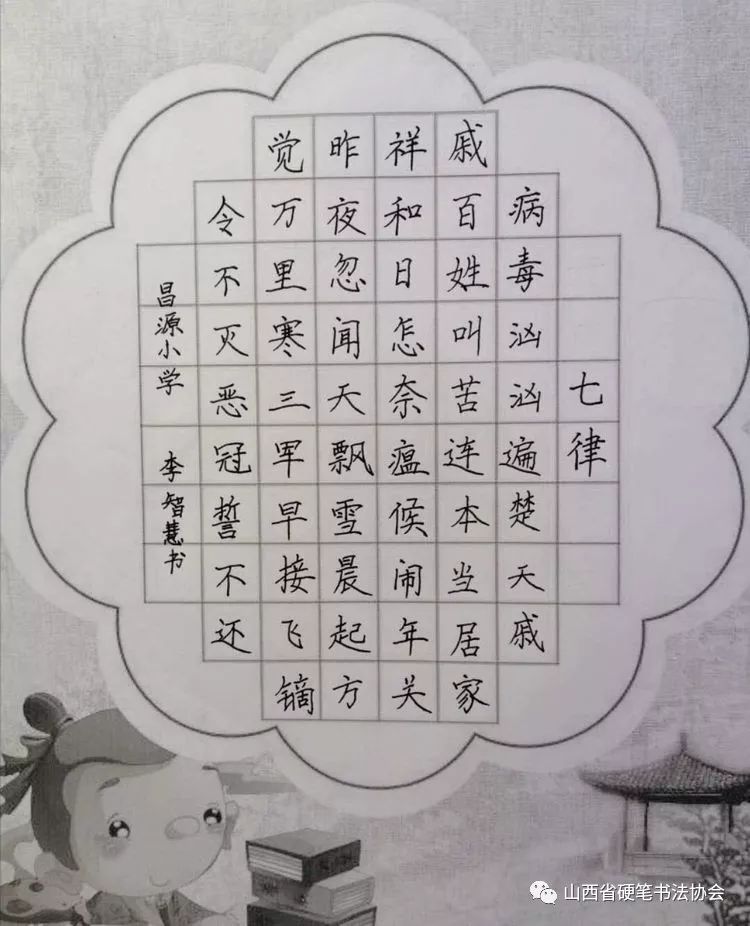 七律
病毒汹汹遍楚天戚
戚百姓叫苦连本当居家
祥和日怎奈瘟候闹年关
昨夜忽闻天飘雪晨起方
觉万里寒三军早接飞镝
令不灭恶冠誓不还
昌源小学 李智慧书
山西省硬笔书法协会